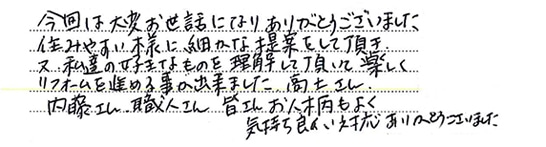 今回は大変お世話になりありがとうございました
住みやすい様に、細かな提案をして頂き
又、私達の好きなものを理解して頂いて楽しく
リフォームを進める事が出来ました。高士さん、
内藤さん、職人さん、皆さんお人柄もよく
気持ち良い対応ありがとうございました